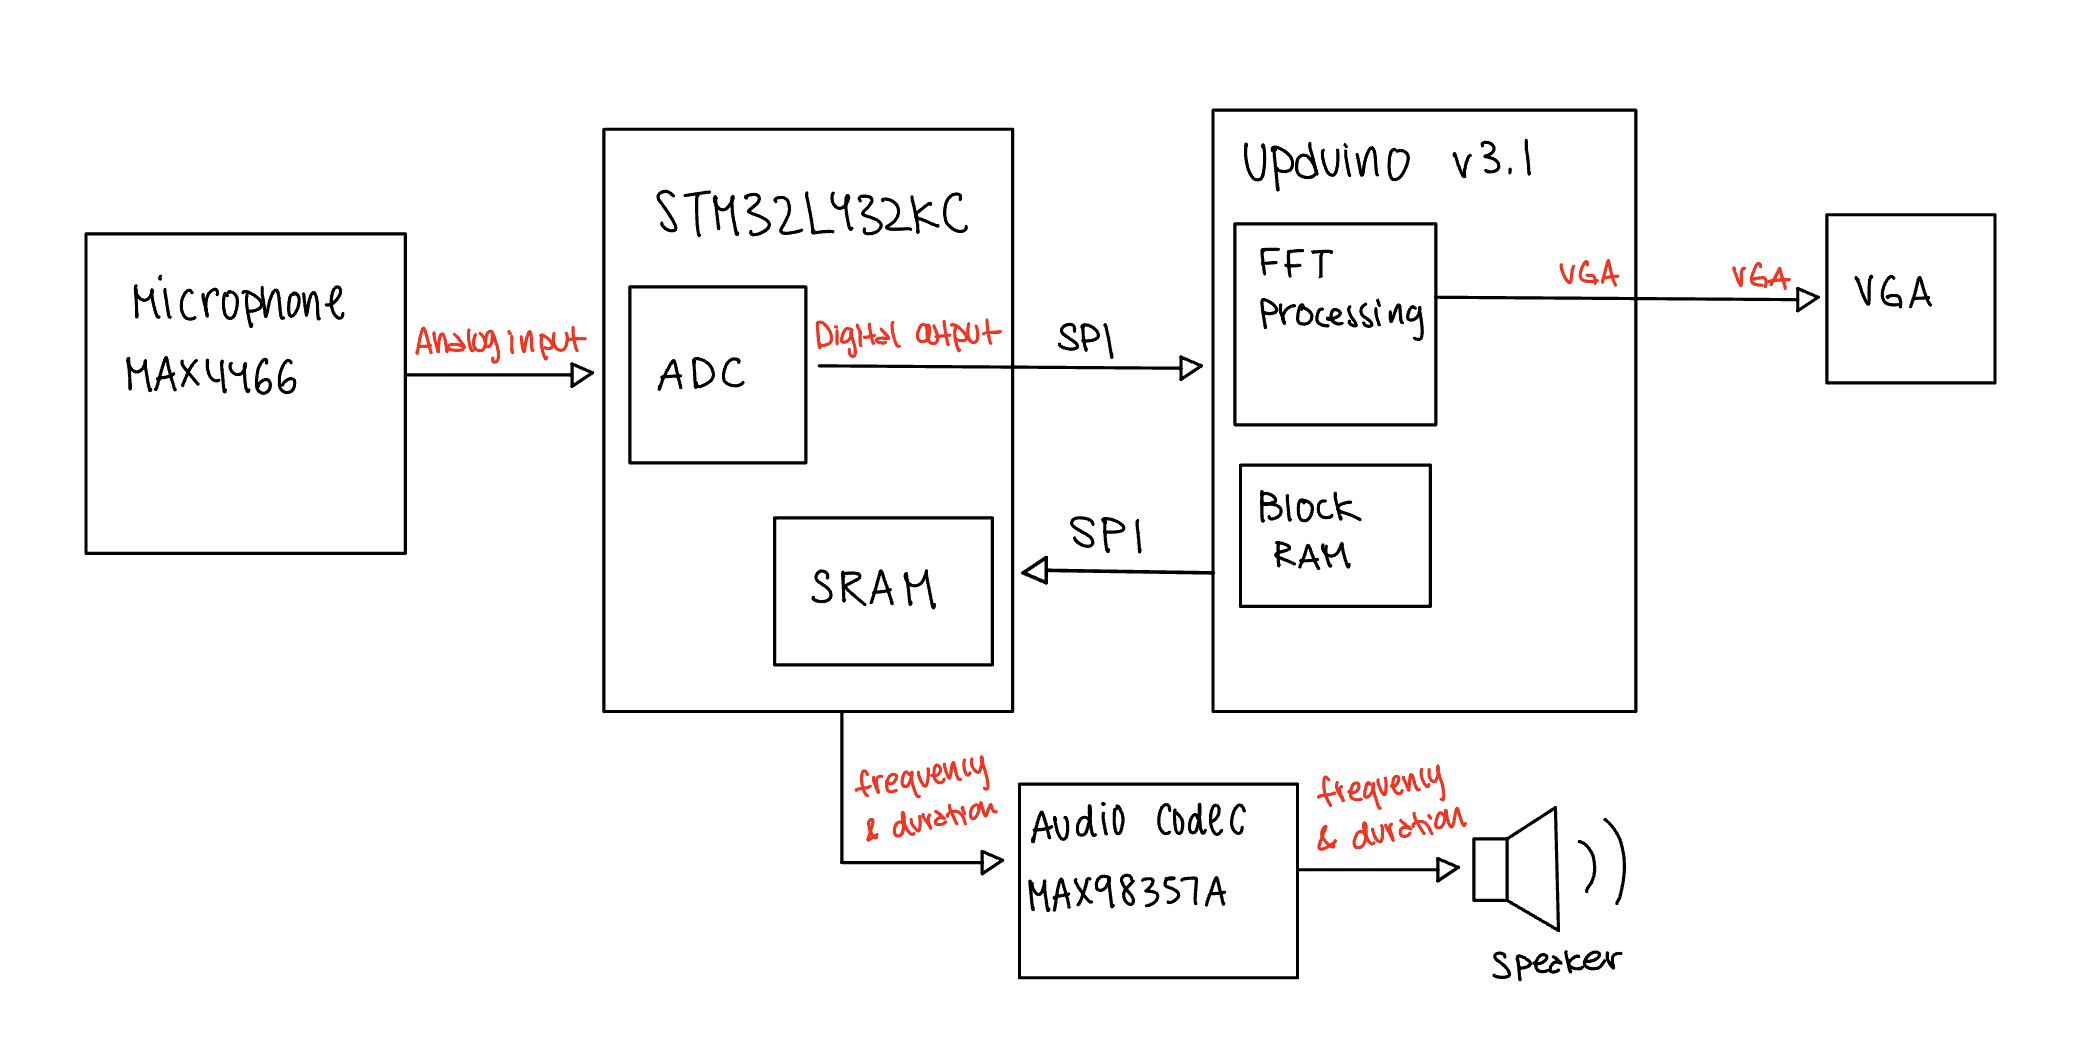 Microphone
MAX4466
Analog input
STM32L432KC
ADC
Digital output
SRAM
SPI
SPI
Upduino v3.1
FFT
Processing
Block
RAM
VGA
VGA
VGA
frequency
& duration
Audio Codec
MAX98357A
frequency
& duration
Speaker